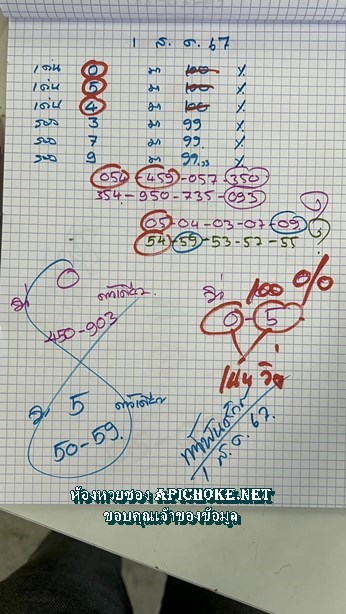 1 ส.ค. 67
เด่น 0 มา 100 %
เด่น 5 มา 100 %
เด่น 4 มา 100 %
รอง 3 มา 99 %
รอง 7 มา 99. %
รอง 9 มา 99.99 %
054-459-057-350
354-950-735-093
05-04-03-07-09
54-59-53-57-55
0
ตัวเดียว
450-903
วิ่ง 100%
0-5
เน้นวิ่ง
5 ตัวเดียว
50-59.
1 ส.ค. 67.
ห้องหวยซอง APICHOKE.NET
ขอบคุณเจ้าของข้อมูล